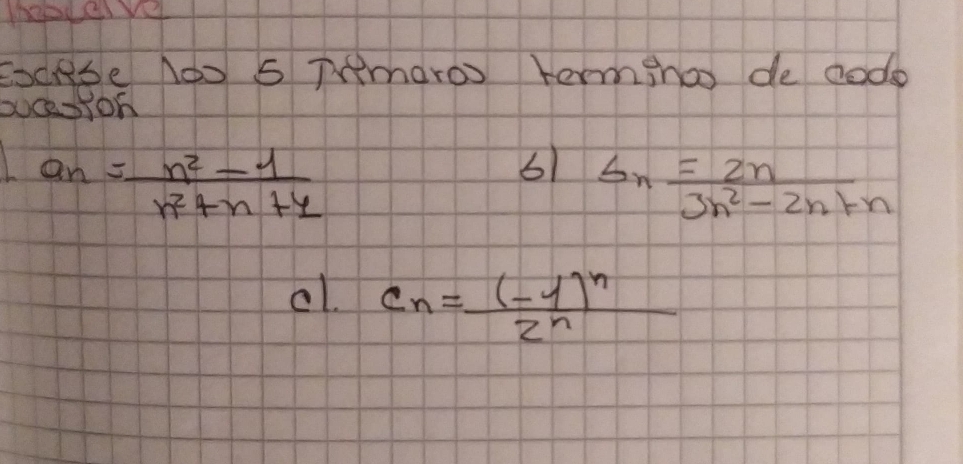 Resuelve
Escribe los 5 primeros terminos de cada
sucesion
an = n² - 1 / n² + n + 1
b) bn = 2n / 3n² - 2n + n
c). cn = (-1)ⁿ / 2ⁿ